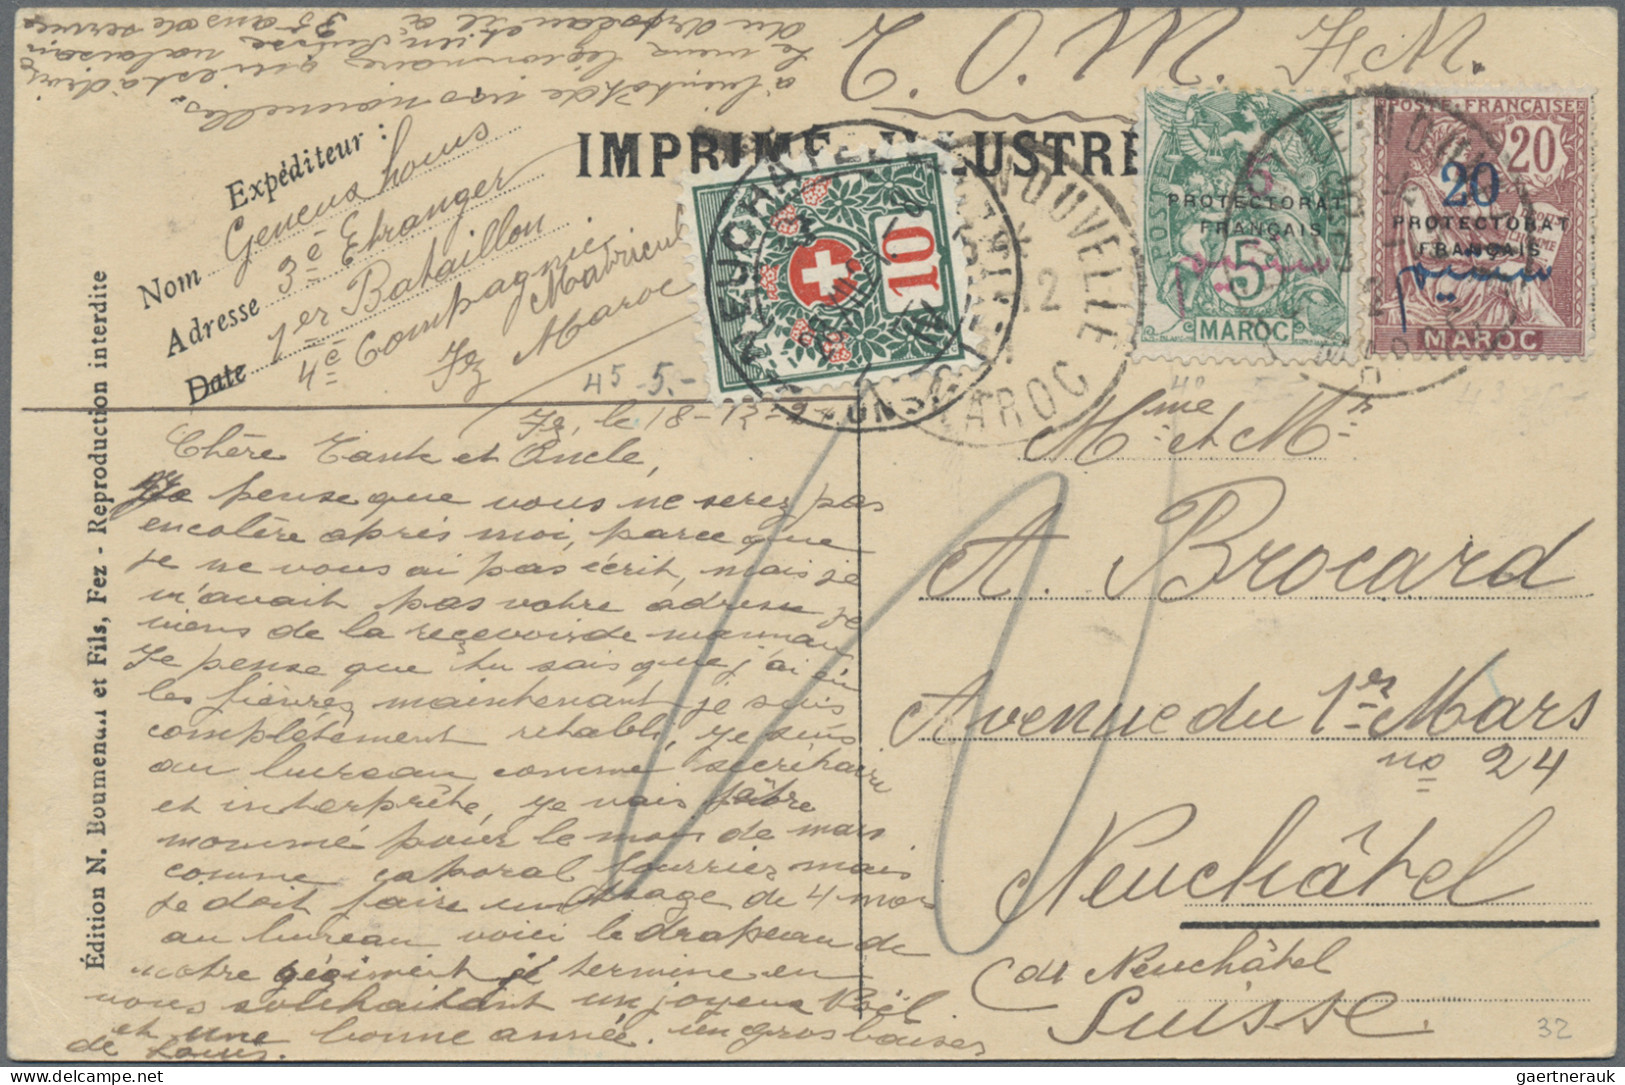 T. O. M. F.M.
à bientôt de vos nouvelles.
Le vieux légionnaire qui est à
du drapeau et en Suisse valaisan
35 ans de service
IMPRIMÉ ILLUSTRÉ
Expéditeur :
Nom Geneux Louis
Adresse 3e Etranger
Date 1er Bataillon
4e Compagnie
Fez Maroc
Matricule
45 -5.-
POSTE
5
PROTECTORAT
FRANÇAIS
5
MAROC
POSTE FRANÇAISE
20
20
PROTECTORAT
FRANÇAIS
MAROC
10
NOUVELLE
MAROC
12
Fez, le 18-12-24
Chère Tante et Oncle,
Je pense que vous ne serez pas
encolère après moi, parce que
je ne vous ai pas écrit, mais je
n'avait pas votre adresse je
viens de la reçevoir de maman
Je pense que tu sais que j'ai eu
les fièvres maintenant je suis
complétement rétabli, je suis
au bureau comme secrétaire
et interprête, je vais être
nommé pour le mois de mars
comme caporal fourrier mais
je doit faire un stage de 4 mois
au bureau voici le drapeau de
notre régiment je termine en
vous souhaitant un joyeux Noël
et une bonne année. un gros baiser
de Louis.
Mme et Mr
A. Brocard
Avenue du 1er Mars
no 24
Neuchâtel
Cde Neuchâtel
Suisse
32
Édition N. Boumendil et Fils, Fez - Reproduction interdite
gaertnerauk